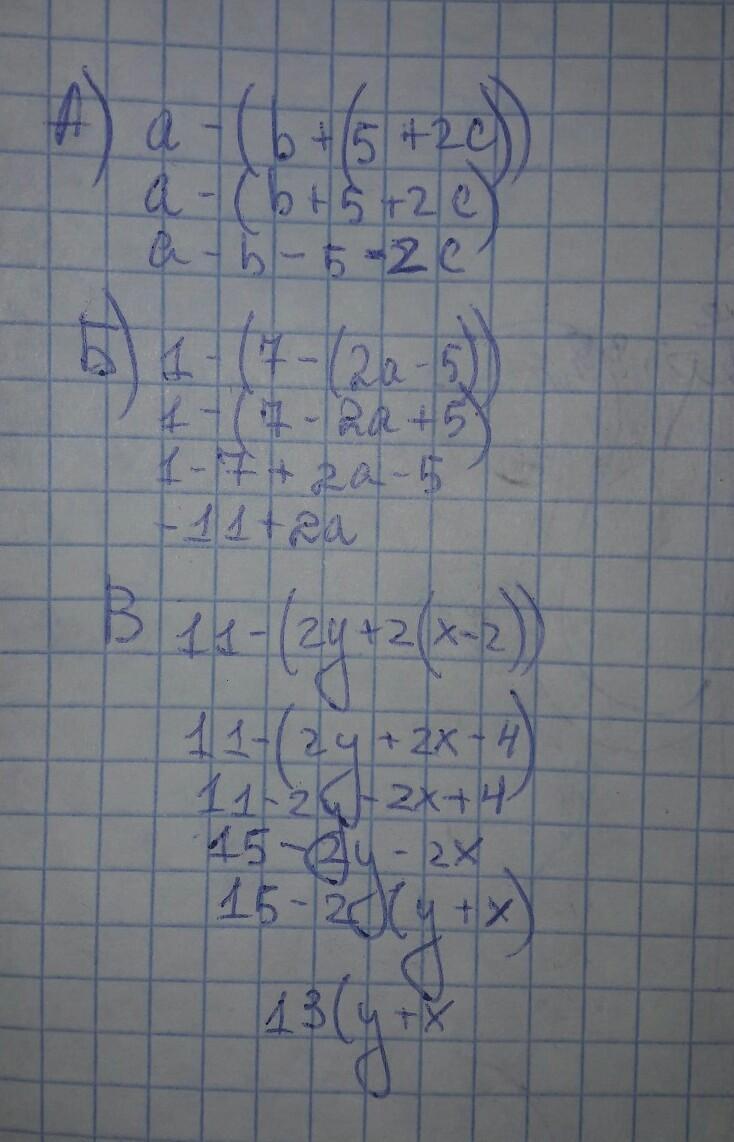 А) a - (b + (5 + 2c))
a - (b + 5 + 2c)
a - b - 5 - 2c
Б) 1 - (7 - (2a - 5))
1 - (7 - 2a + 5)
1 - 7 + 2a - 5
-11 + 2a
В 11 - (2y + 2(x - 2))
11 - (2y + 2x - 4)
11 - 2y - 2x + 4
15 - 2y - 2x
15 - 2(y + x)
13(y + x